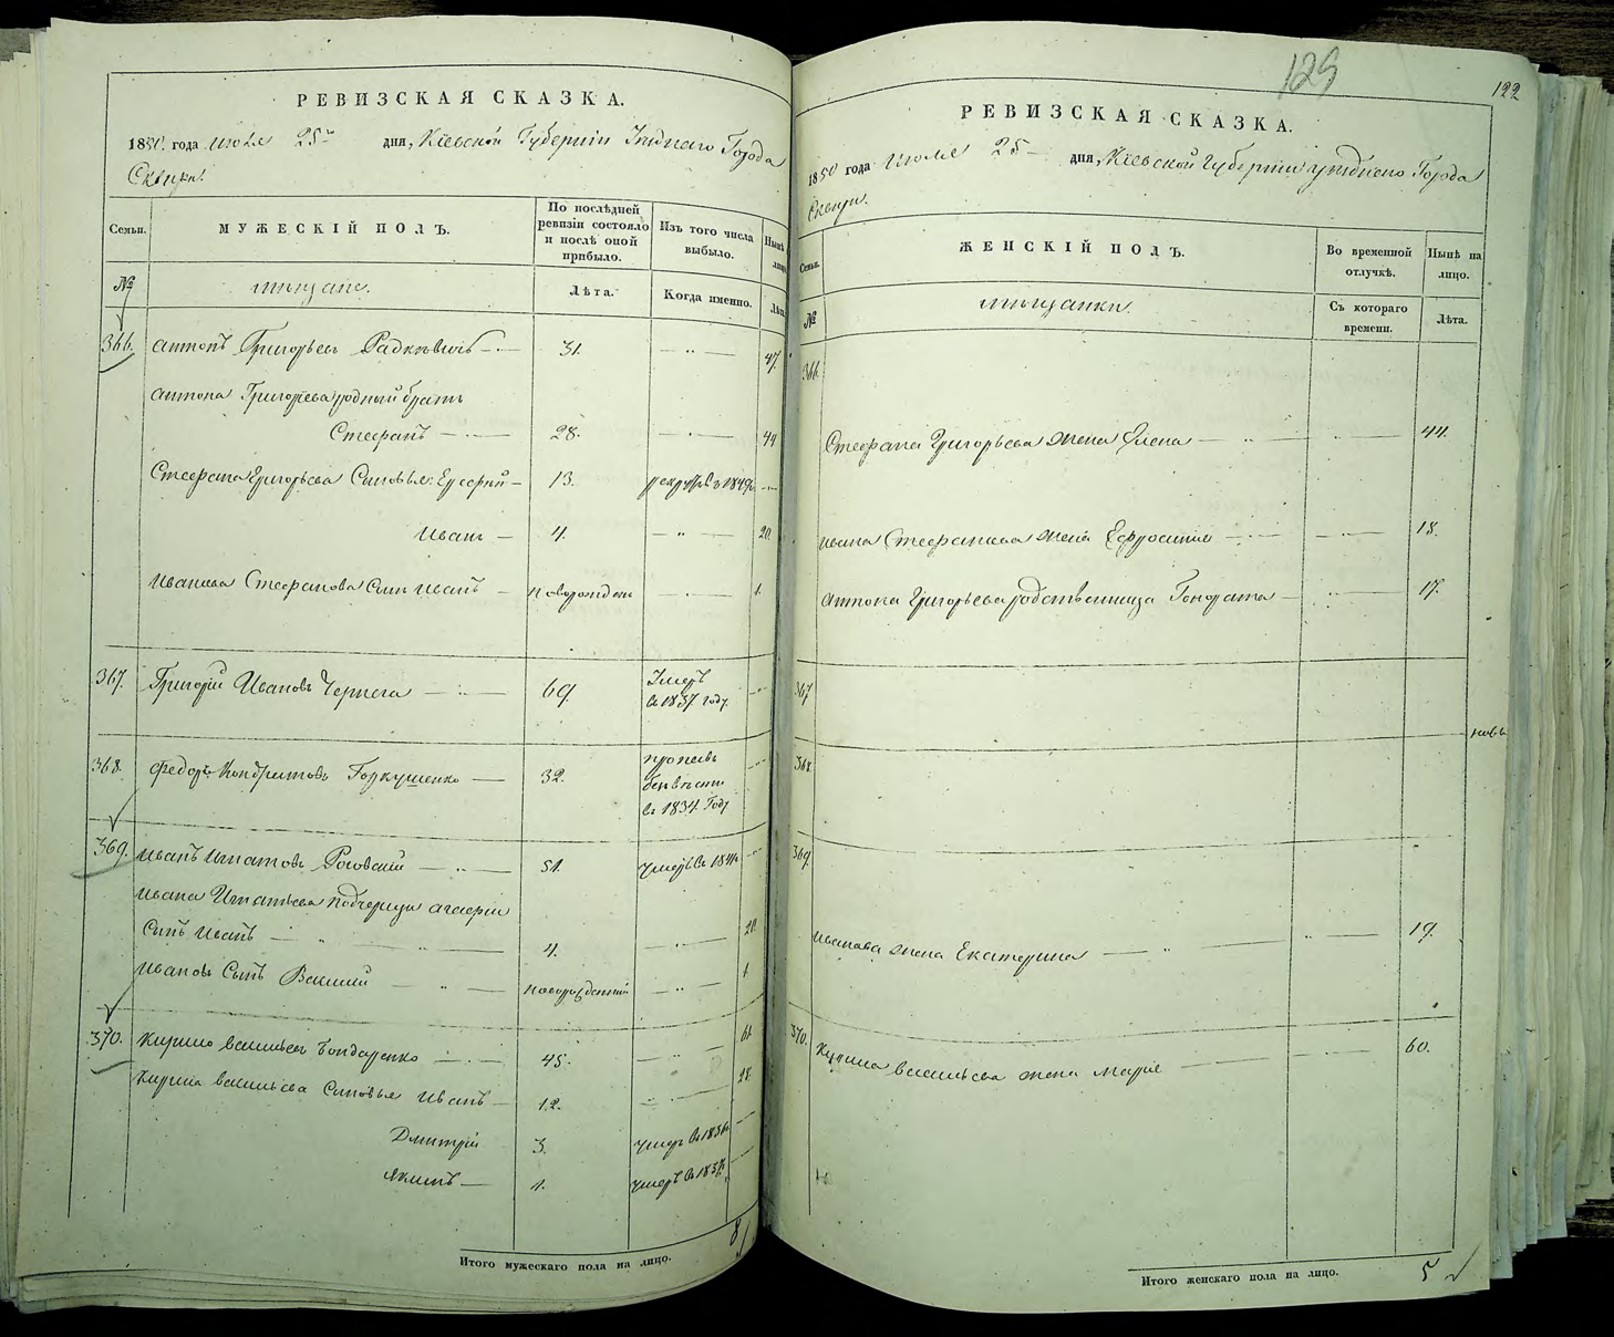 РЕВИЗСКАЯ СКАЗКА.
1850 года июля 25 дня, Кіевской Губерніи Уѣзднаго Города
Сквиры.
Семьи.
МУЖЕСКІЙ ПОЛЪ.
По послѣдней ревизіи состояло и послѣ оной прибыло.
Изъ того числа выбыло.
Нынѣ на лицо
№
мѣщане.
Лѣта.
Когда именно.
Лѣта
366. Антонъ Григорьевъ Радкевичъ 31. 47.
Антона Григорьева родный братъ
Стефанъ 28. 44
Стефана Григорьева Сыновья: 13. рекрутъ въ 1849
Иванъ 4. 20.
Иванова Стефанова Сынъ Иванъ новорожден 1.
367. Григорій Ивановъ Чернега 69. Умеръ
въ 1837 году.
368. Федоръ Кондратовъ Горкушенко 32. пропавъ
безвѣсти
въ 1834 Году
369. Иванъ Игнатовъ Роговскій 51. умеръ въ
Ивана Игнатьева подчерицы Агафіи
Сынъ Иванъ 4. 20.
Ивановъ Сынъ Василий новорожденный 1
370. Кирило Васильевъ Бондаренко 45. 61
Кирила Васильева Сыновья Иванъ 12. 28.
Дмитрій 3. умеръ въ 1836
Якимъ 1. умеръ въ 1837
Итого мужескаго пола на лицо. 8
129
122
РЕВИЗСКАЯ СКАЗКА.
1850 года июля 25 дня, Кіевской Губерніи уѣзднаго Города
Сквиры.
Семьи.
ЖЕНСКІЙ ПОЛЪ.
Во временной отлучкѣ.
Нынѣ на лицо.
№
мѣщанки.
Съ котораго времени.
Лѣта.
366
Стефана Григорьева жена Елена 44.
Ивана Стефанова жена Ефросинія 18.
Антона Григорьева родственница Гонората 17.
367
368
369
Иванова жена Екатерина 19.
370. Кирила Васильева жена Марія 60.
Итого женскаго пола на лицо. 5